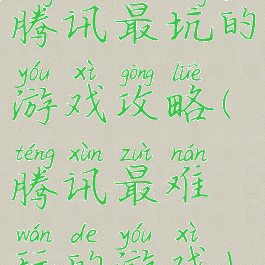 腾讯最坑的
yóu xì gōng lüè
游戏攻略(
téng xùn zuì nán
腾讯最难
wán de yóu xì
玩的游戏)